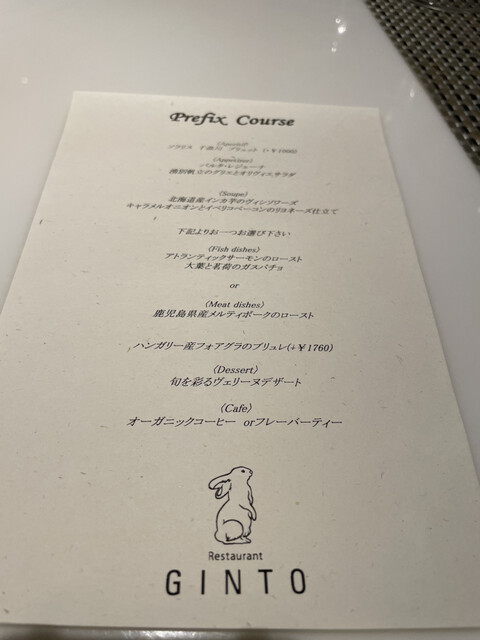 Prefix Course
(Special)
(Appetizer)
(Soupe)
北海道産インカ芋のヴィシソワーズ
キャラメルオニオンとイベリコベーコンのリヨネーズ仕立て
下記よりお一つお選び下さい
(Fish dishes)
アトランティックサーモンのロースト
大葉と茗荷のガスパチョ
or
(Meat dishes)
鹿児島県産メルティポークのロースト
ハンガリー産フォアグラのブリュレ(+￥1760)
(Dessert)
旬を彩るヴェリーヌデザート
(Cafe)
オーガニックコーヒー orフレーバーティー
Restaurant
GINTO